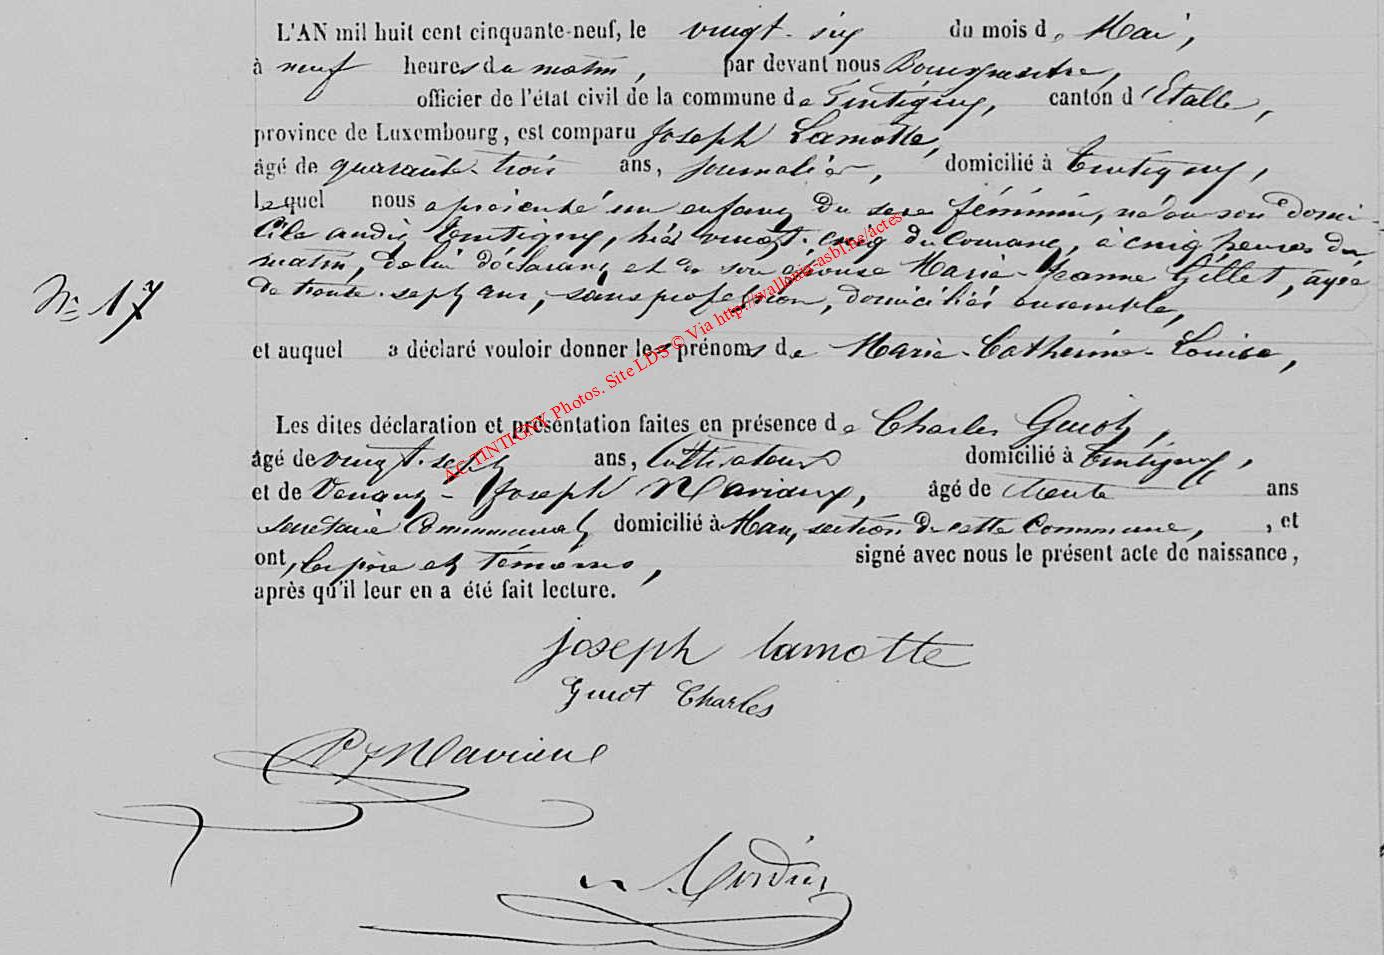 L'AN mil huit cent cinquante-neuf, le vingt-six du mois de Mai,
à neuf heures du matin, par devant nous Bourgmestre,
officier de l'état civil de la commune de Tintigny, canton d'Etalle,
province de Luxembourg, est comparu Joseph Lamotte,
âgé de quarante-trois ans, journalier, domicilié à Tintigny,
lequel nous a présenté un enfant du sexe féminin, né en son domi-
cile audit Tintigny, hier vingt-cinq du Courant, à cinq heures du
matin, de lui déclarant et de son épouse Marie-Jeanne Gillet, agée
de trente-sept ans, sans profession, domiciliés ensemble,
N° 17
et auquel a déclaré vouloir donner les prénoms de Marie-Catherine-Louise,
Les dites déclaration et présentation faites en présence de Charles Guiot,
âgé de vingt-sept ans, Cultivateur domicilié à Tintigny,
et de Joseph Maviaux, âgé de trente ans
Secrétaire Communal, domicilié à Han, section de cette Commune, , et
ont, les père et témoins, signé avec nous le présent acte de naissance,
après qu'il leur en a été fait lecture.
joseph lamotte
Guiot Charles
AC TINTIGNY Photos. Site LDS © Via http://wallonia-asbl.be/actes